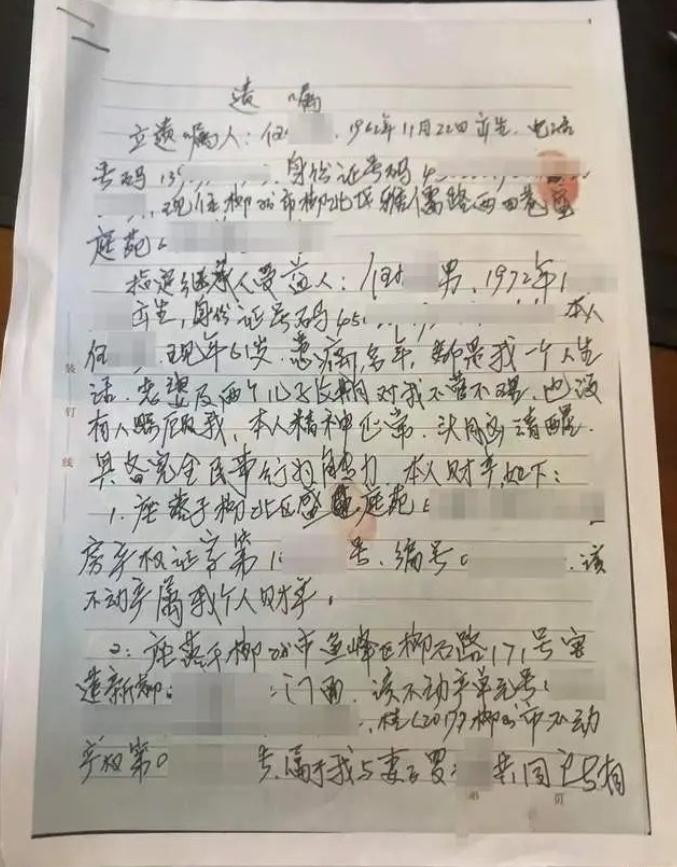 遗 嘱
立遗嘱人:任 、1962年11月22日出生、电话
号码13 、身份证号码4
、现住柳州市柳北区雅儒路西四巷盛
庭苑
指定继承人受益人: 任 男、1972年1
出生,身份证号码45 本人
任 、现年61岁、患病多年、都是我一个人生
活、老婆及两个儿子长期对我不管不理、也没
有人照顾我,本人精神正常、头脑清醒、
具备完全民事行为能力、本人财产如下:
1、座落于柳北区盛 庭苑
房产权证字第1 号、编号0 、该
不动产属我个人财产。
2:座落于柳州市鱼峰区柳石路171号
造新 门面、该不动产单元号
、桂(2017)柳州市不动
产权第0 号、属于我与妻子罗 共同
装 订 线
第 页